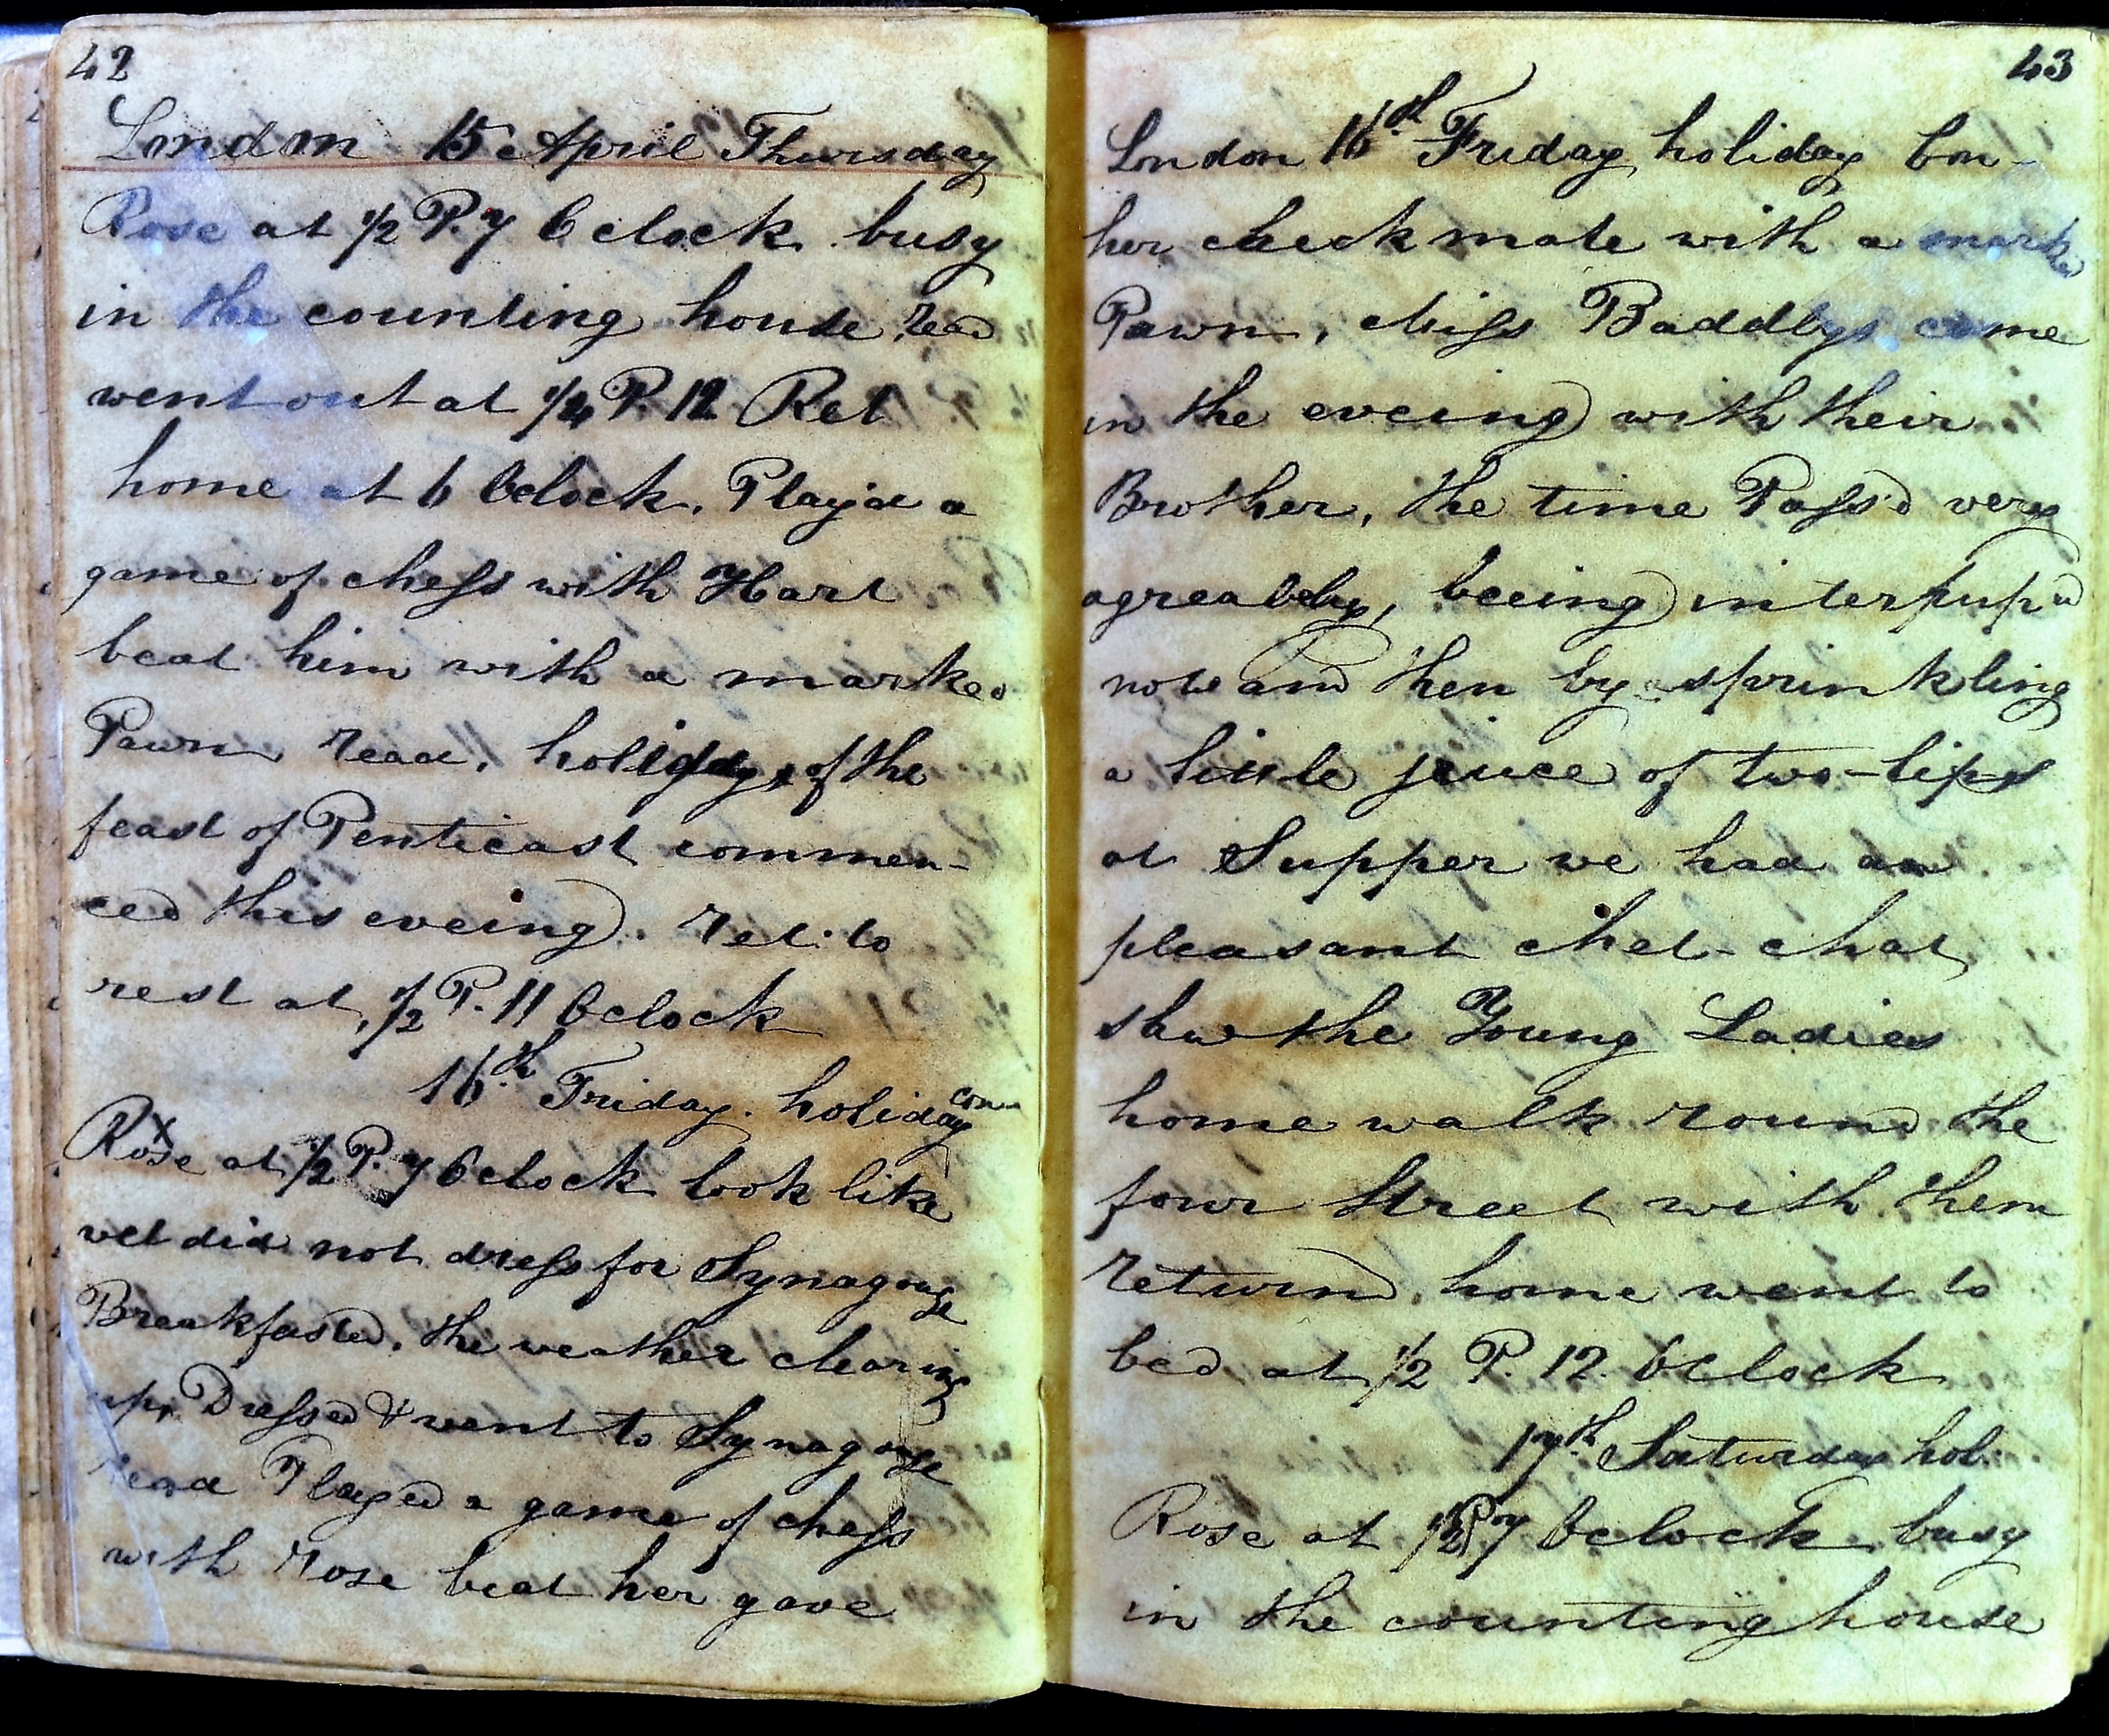 42
London 15 April Thursday
Rose at 1/2 P. 7 Oclock busy
in the counting house, read
went out at 1/4 P. 12 Ret
home at 6 Oclock. Play'd a
game of chess with Hart
beat him with a marked
Pawn read, holiday of the
feast of Penticast commen-
ced this eveing. ret. to
rest at 1/2 P. 11 Oclock
16.th Friday. holiday con-
Rose at 1/2 P. 7 Oclock look like
wet did not dress for Synagouge
Breakfasted. the weather clearing
up, Dressed & went to Synagouge
read Played a game of chess
with rose beat her gave
43
London 16.th Friday holiday Con-
her check mate with a marked
Pawn, Miss Baddlys came
in the eveing with their
Brother, the time Pass'd very
agreabely, beeing
now and then by a sprinkling
a little jeuce of two-lips
at Supper we had a
pleasant chet-chat
the Young Ladies
home walk round the
four Street with them
return'd home went to
bed at 1/2 P. 12. Oclock
17.th Saturday hol.
Rose at 1/2 P 7 Oclock busy
in the counting house